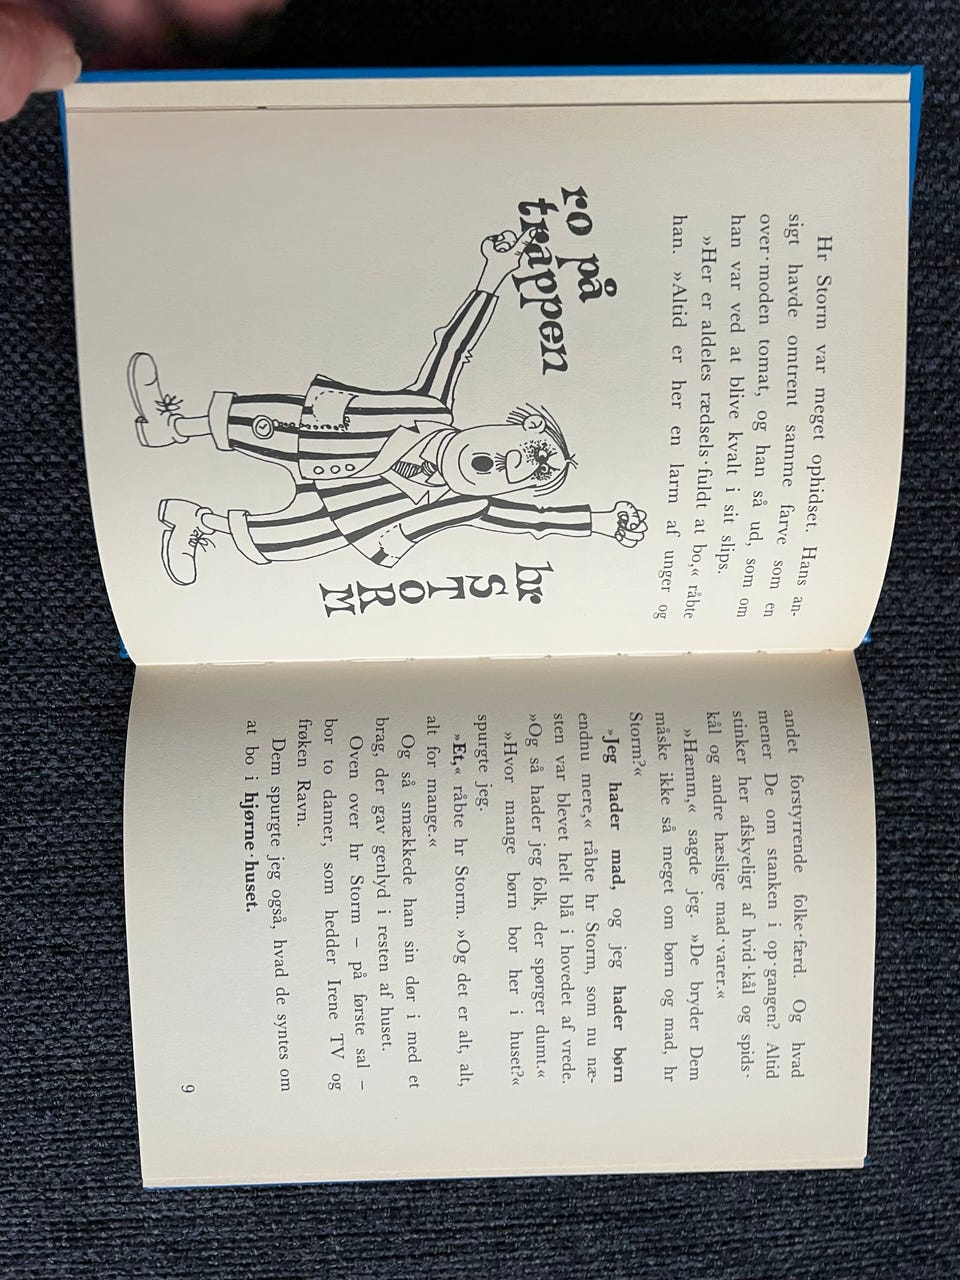 Hr Storm var meget ophidset. Hans an-
sigt havde omtrent samme farve som en
over·moden tomat, og han så ud, som om
han var ved at blive kvalt i sit slips.
»Her er aldeles rædsels·fuldt at bo,« råbte
han. »Altid er her en larm af unger og
ro på
trappen
hr
S
T
O
R
M
andet forstyrrende folke·færd. Og hvad
mener De om stanken i op·gangen? Altid
stinker her afskyeligt af hvid·kål og spids·
kål og andre hæslige mad·varer.«
»Hæmm,« sagde jeg. »De bryder Dem
måske ikke så meget om børn og mad, hr
Storm?«
»Jeg hader mad, og jeg hader børn
endnu mere,« råbte hr Storm, som nu næ-
sten var blevet helt blå i hovedet af vrede.
»Og så hader jeg folk, der spørger dumt.«
»Hvor mange børn bor her i huset?«
spurgte jeg.
»Et,« råbte hr Storm. »Og det er alt, alt,
alt for mange.«
Og så smækkede han sin dør i med et
brag, der gav genlyd i resten af huset.
Oven over hr Storm – på første sal –
bor to damer, som hedder Irene TV og
frøken Ravn.
Dem spurgte jeg også, hvad de syntes om
at bo i hjørne·huset.
9